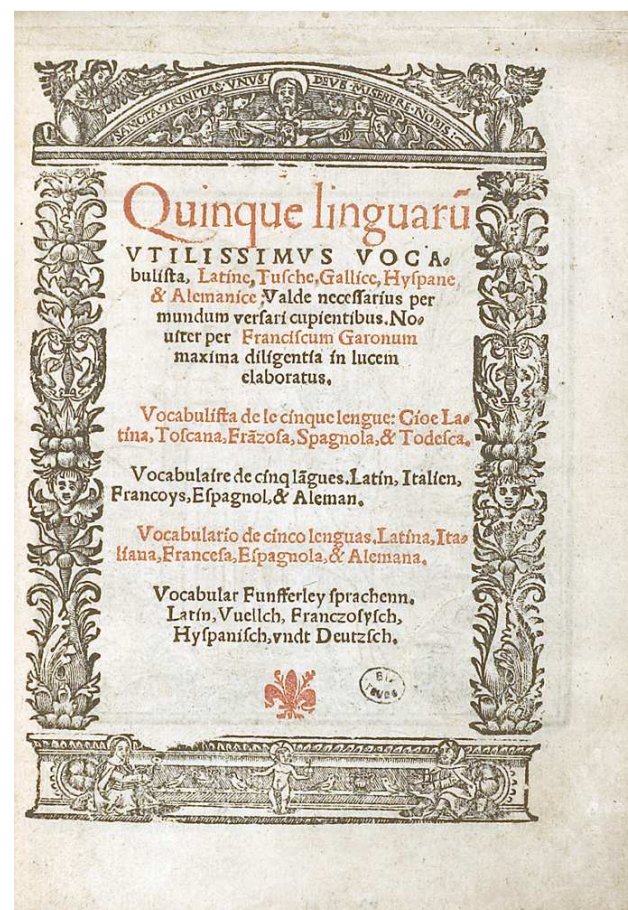 SANCTA·TRINITAS·VNVS·DEVS·MISERERE·NOBIS·
Quinque linguarū
VTILISSIMVS VOCA⸗
buliſta, Latine, Tuſche, Gallice, Hyſpane,
& Alemanice, Valde neceſſarius per
mundum verſari cupientibus. No⸗
uiter per Franciſcum Garonum
maxima diligentia in lucem
elaboratus.
Vocabuliſta de le cinque lengue: Cioe La⸗
tina, Toſcana, Frãzoſa, Spagnola, & Todeſca.
Vocabulaire de cinq lãgues. Latin, Italien,
Francoys, Eſpagnol, & Aleman.
Vocabulario de cinco lenguas. Latina, Ita⸗
liana, Franceſa, Eſpagnola, & Alemana.
Vocabular Funfferley ſprachenn.
Latin, Vuelſch, Franczoſyſch,
Hyſpaniſch, vndt Deutzſch.